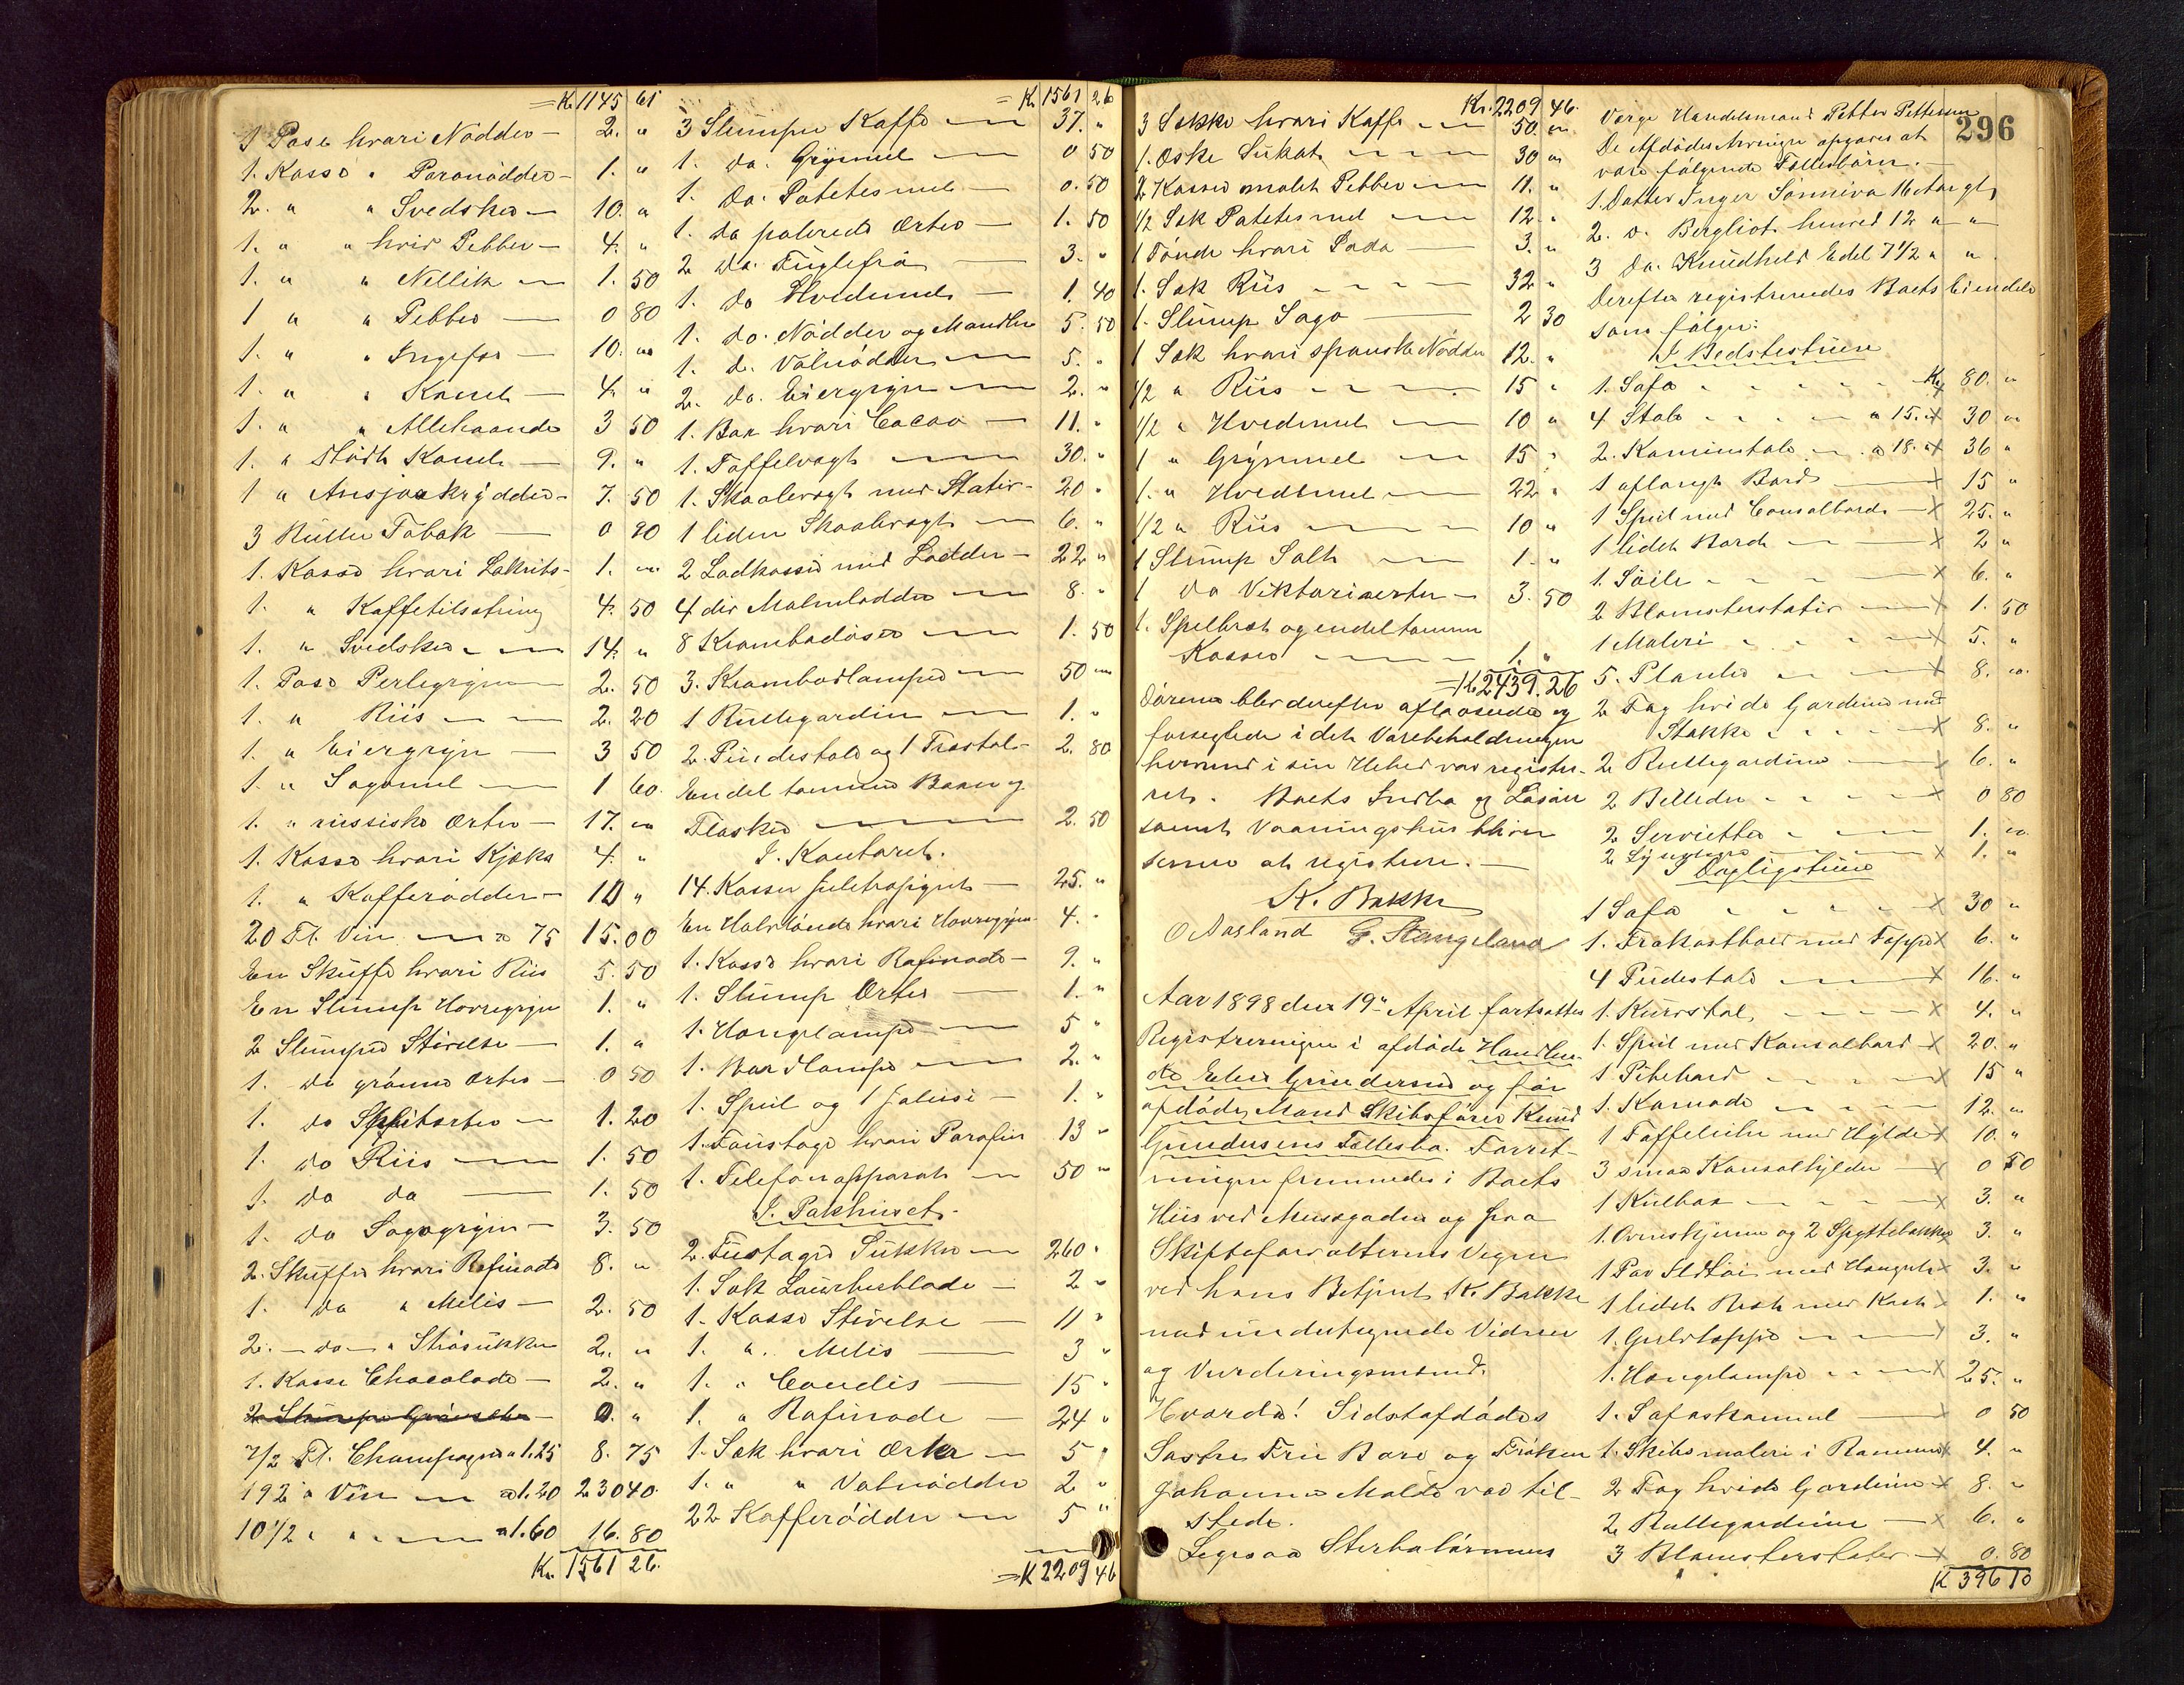 = Kr 1145 61
1 Pose hvori Nødder — 2. "
1. Kasse " Paranødder — 1. "
2. " " Svedsker — 10. "
1. " " hvid Pebber — 4. "
1. " " Nellik — 1. 50
1 " " Pebber — 0 80
1. " " Ingefær — 10. "
1. " " Kanel — 4. "
1. " " Allehaande 3 50
1. " Stødt Kanel — 9. "
1 " Ansjoskrydder — 7. 50
3 Ruller Tobak — 0 90
1. Kasse hvori Lakrits — 1. "
1. " Kaffetilsætning 4. 50
1. " Svedsker — 14. "
1. Pose Perlegryn — 2. 50
1. " Riis — 2. 20
1. " Eiergryn — 3 50
1. " Sagomel — 1 60.
1. " russiske Erter — 17. "
1. Kasse hvori Kjæks 4. "
1. " Kafferødder — 10 "
20 Fl. Vin — a 75 15.00
En Skuffe hvori Riis 5.50
En Slump Havregryn 1. "
2 Slumpe Stivelse — 1. "
1. do grønne Erter — 0 50
1. do Spliterter — 1.20
1. do Riis — 1. 50
1. do do — 1. 50
1. do Sagogryn — 3. 50
2. Skuffer hvori Rafinade 8. "
1. do " Melis — 2. 50
2. — do — " Strøsukker 2. "
1. Kasse Chocolade — 2. "
7/2 Fl. Champagne a 1.25 8. 75
192 " Vin — a 1.20 230 40.
10 1/2 " " — a 1.60 16. 80
Kr. 1561 26.
= Kr. 1561 26
3 Slumper Kaffe — 37. "
1. do. Grynmel — 0 50
1. do. Potetesmel — 0. 50
1. do polerede Erter — 1. 50
2 do. Fuglefrø — 3. "
1. do Hvedemel — 1. 40
1. do. Nødder og Mandler 5. 50
1. do. Valnødder — 5. "
2. do. Eiergryn — 2. "
1. Box hvori Cacao — 11. "
1. Taffelvægt — 30. "
1. Skaalvægt med Stativ — 20 "
1 liden Skaalvægt — 6. "
2 Lodkasser med Lodder — 22 "
4 dir Malmlodder — 8. "
8 Krambodøser — 1. 50
3. Krambodlamper — 50 "
1 Rullegardin — 1. "
2. Pindestole og 1 Træstol — 2. 80
Endel tomme Baxer og
Flasker — 2. 50
I. Kontoret.
14. Kasser Juletræspynt — 25. "
En Halvtønde hvori Havregryn — 4. "
1. Kasse hvori Rafinade — 9. "
1. Slump Erter — 1. "
1. Hængelampe — 5 "
1. Bordlampe — 2. "
1. Speil og 1 Jalusi — 1. "
1. Foustage hvori Parafin 13 "
1. Telefonapparat — 50 "
I. Pakhuset.
2. Fustager Sukker — 260 "
1. Sæk Laurbærblade — 2 "
1. Kasse Stivelse — 11 "
1. " Melis — 3 "
1. " Candis — 15 "
1. " Rafinade — 24 "
1. Sæk hvori Erter — 5 "
1. " " Valnødder 2 "
22 Kafferødder — 5 "
= K 2209 46
Kr. 2209 46.
3 Sække hvori Kaffe — 50. "
1. Æske Sukat — 30 "
2 Kasser malet Pebber — 11. "
1/2 Sæk Potetesmel — 12. "
1 Tønde hvori Soda — 3. "
1. Sæk Riis — 32 "
1. Slump Sago — 2 30
1 Sæk hvori spanske Nødder 12. "
1/2 " Riis — 15 "
1/2 " Hvedemel — 10 "
1 " Grynmel — 15 "
1. " Hvedemel — 22 "
1/2 " Riis — 10 "
1 Slump Salt — 1. "
1 do Viktoriaerter — 3. 50
1. Spilbræt og endel tomme
Kasser — 1. "
= K 2439.26
Dørene blev derefter aflaasede og
forseglede i det Varebeholdningen
hvormed i sin Helhed var registre-
ret. Boets Indbo og Løsøre
samt Vaaningshus bliver
senere at registrere. —
K. Bakke
O Aasland G. Stangeland
Aar 1898 den 19de April fortsattes
Registreringen i afdøde Handlen-
de Elen Gundersens og før
afdøde Mand Skibsfører Knud
Gundersens Fællesbo. Forret-
ningen fremmedes i Boets
Hus ved Musegaden og paa
Skifteforvalterens Vegne
ved hans Betjent K. Bakke
med undertegnede Vidner
og Vurderingsmænd.
Hvorda! Sidstafdødes
Søstre Fru Bore og Frøken
Johanne Malde var til-
stede.
Ligesaa Sterbobørnenes
296
Værge Handelsmand Petter Pettersen
De Afdødes Arvinger opgaves at
være følgende Fællesbørn. —
1. Datter Inger Sønneva 16 Aar gl,
2. D. Bergliot 12 " "
3 do. Edel 7 1/2 " "
Derefter registreredes Boets Eiendele
som følger:
I Bedstestuen
1. Sofa Kr 80. "
4 Stole a 15. x 30 "
2. Kaminstole a 18. x 36 "
1 aflangt Bord — x 15 "
1 Speil med Consolbord — x 25. "
1 lidet Bord — x 2 "
1. Søile — x 6. "
2 Blomsterstativ — x 1. 50
1 Maleri — x 5. "
5. Planter — x 8. "
2 Fag hvide Gardiner med
Stokke — x 8. "
2 Rullegardiner — x 6. "
2 Billeder — x 0 80
2 Servietter — 1. "
2 — x 1. "
I Dagligstuen
1 Sofa — x 30 "
1. Frokostbord med Teppe x 6. "
4 Pindestole — x 16. "
1. Kurvstol, — x 4. "
1. Speil med Konsolbord x 20. "
1 Pibebord — x 15 "
1. Komode — 12. "
1 Taffeluhr med Hylde x 10. "
3 smaa Konsolhylder — x 0 50
1 Kulbox — x 3. "
1. Ovnsskjerm og 2 Spyttebakker 3. "
1 Par Ildtøi med Hængsel x 3. "
1 lidet x 1. "
1. Gulvteppe — x 3. "
1. Hængelampe — x 25. "
1. Sofaskammel — x 0 50
1. Skibsmaleri i Ramme x 4. "
2 Fag hvide Gardiner x 8. "
2. Rullegardiner — x 6. "
3 Blomsterstativer x 0. 80
K 396 10